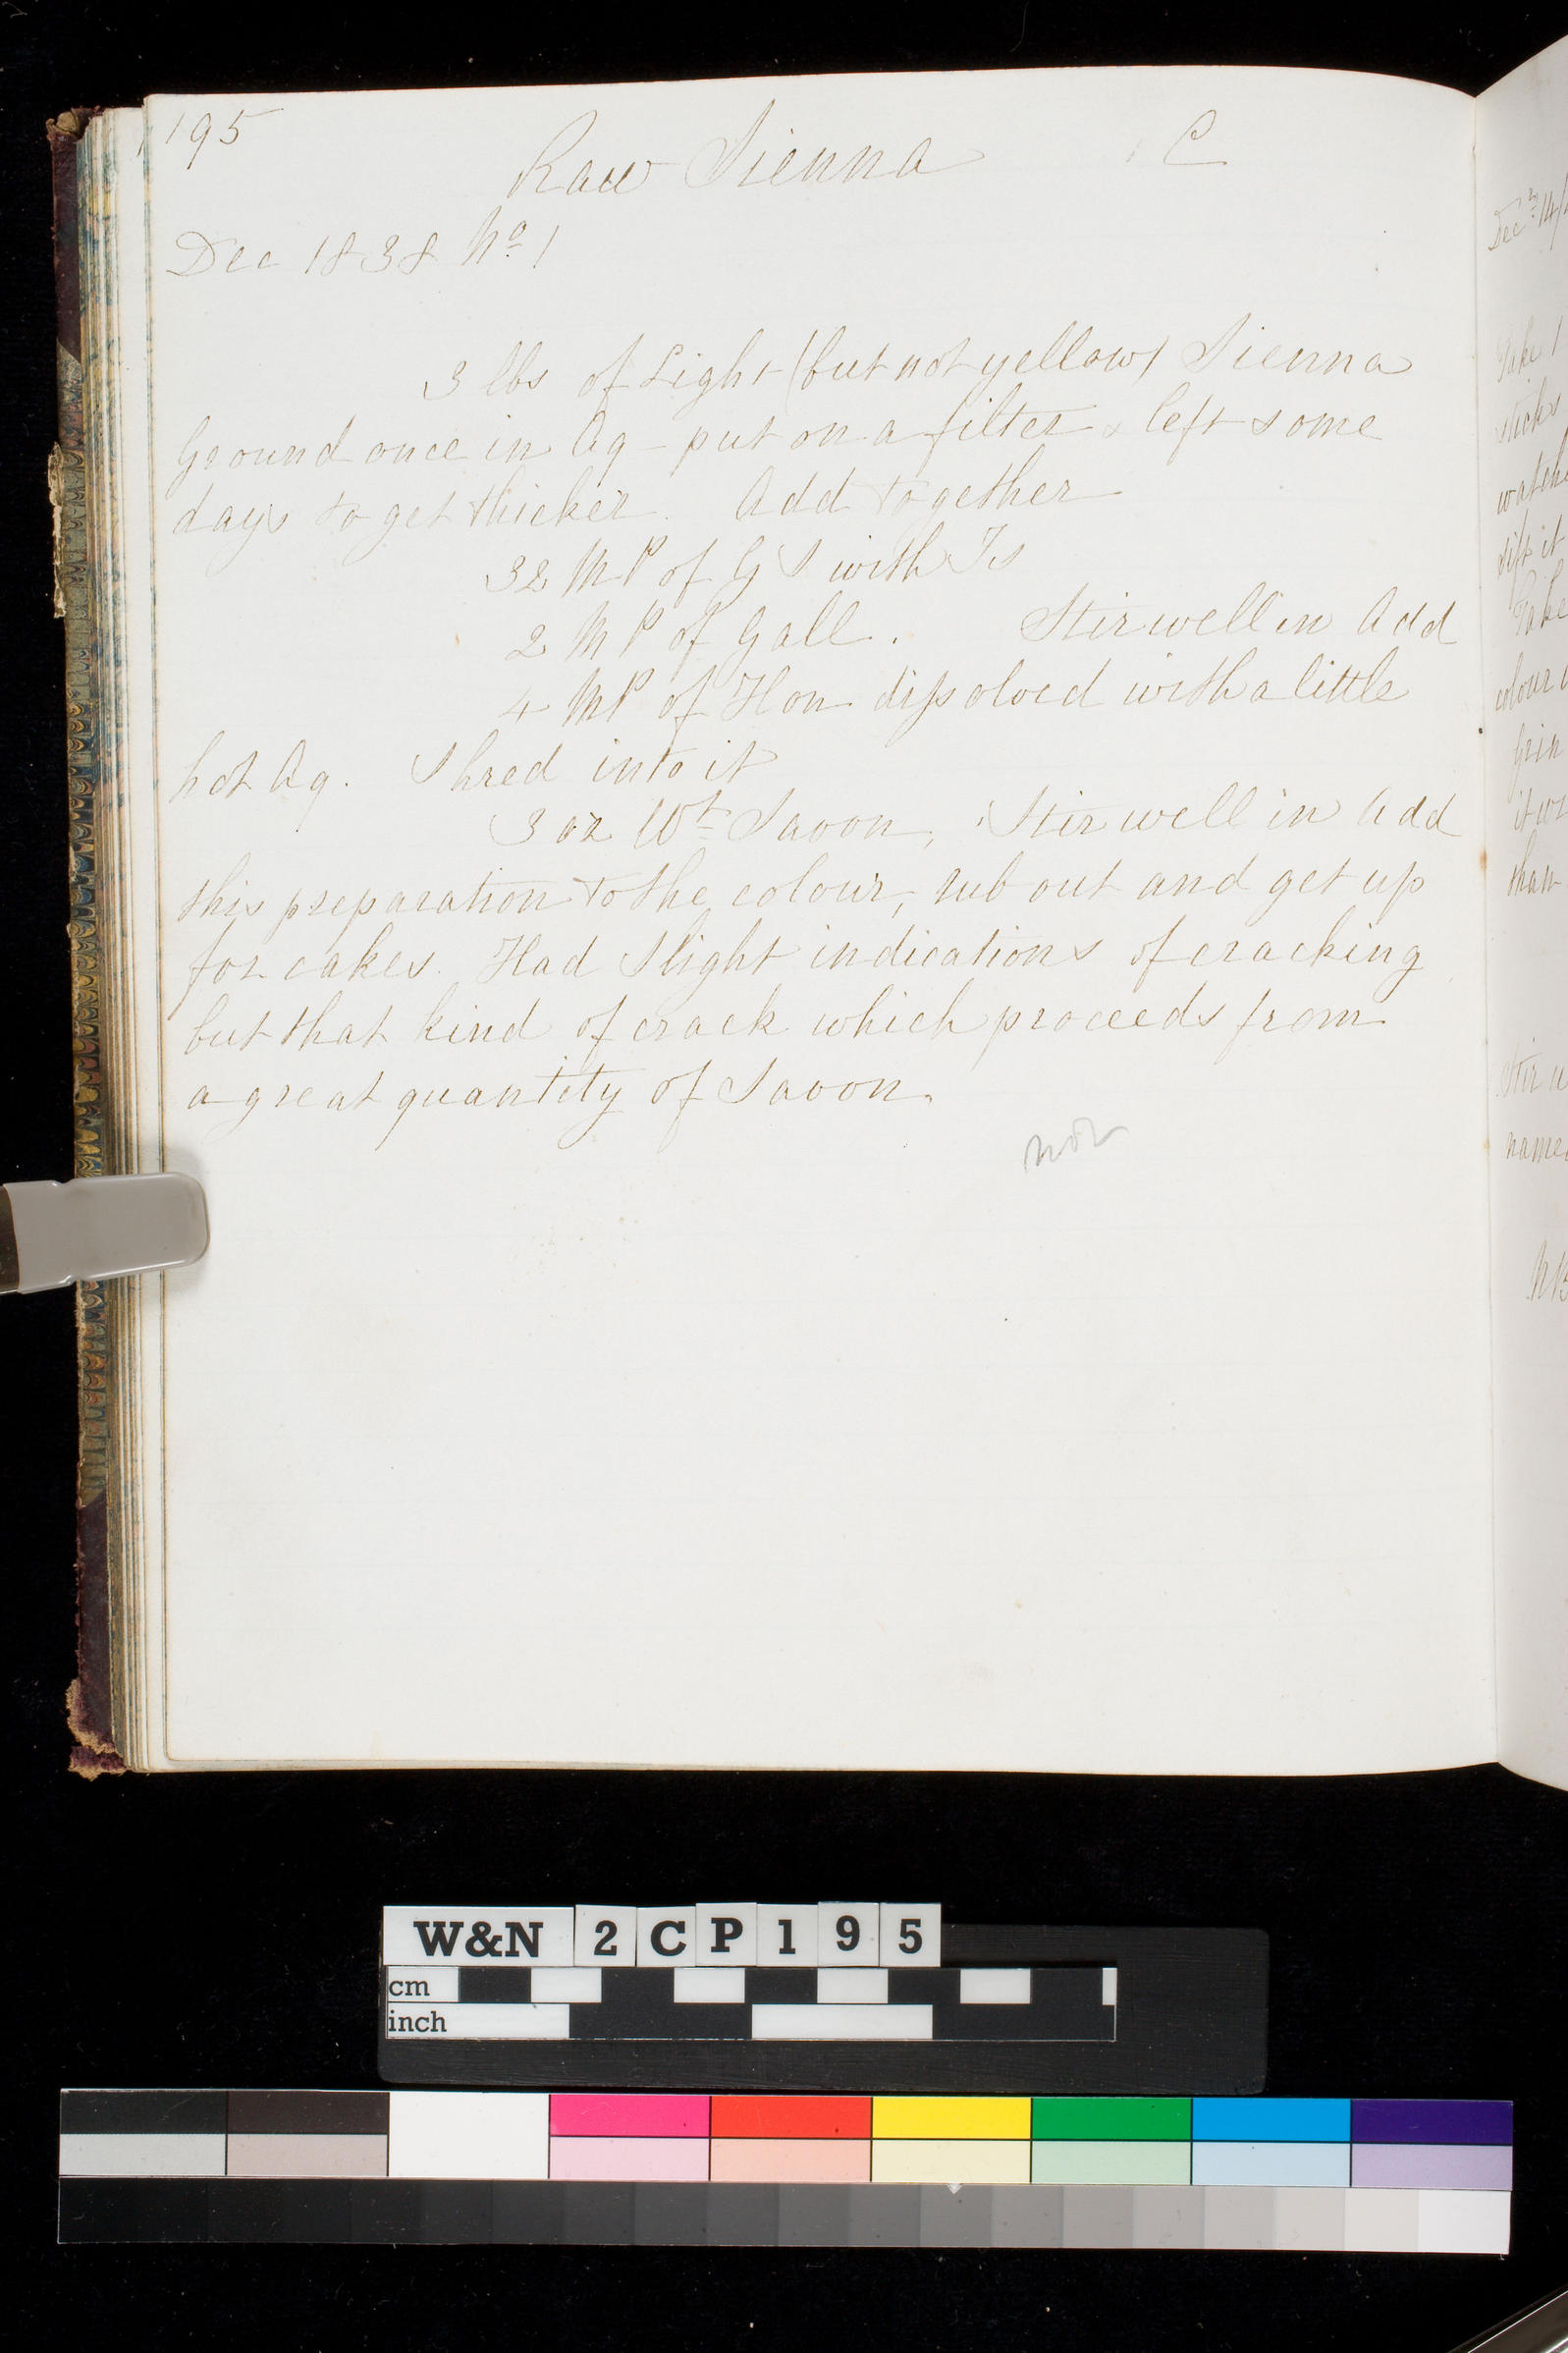 195
Raw Sienna C
Dec 1838 No 1
3 lbs of Light (but not yellow) Sienna
Ground once in Aq - put on a filter & left some
days to get thicker. Add together
32 MP of G S with Is
2 MP of Gall. Stir well in Add
4 MP of Hon dissolved with a little
hot Aq. Shred into it
3 oz Wt Savon, Stir well in Add
this preparation to the colour, rub out and get up
for cakes. Had slight indications of cracking
but that kind of crack which proceeds from
a great quantity of Savon.
Take
sticks
sift it
Take
colour
it
than
Stir
NB
W&N 2CP195
cm
inch